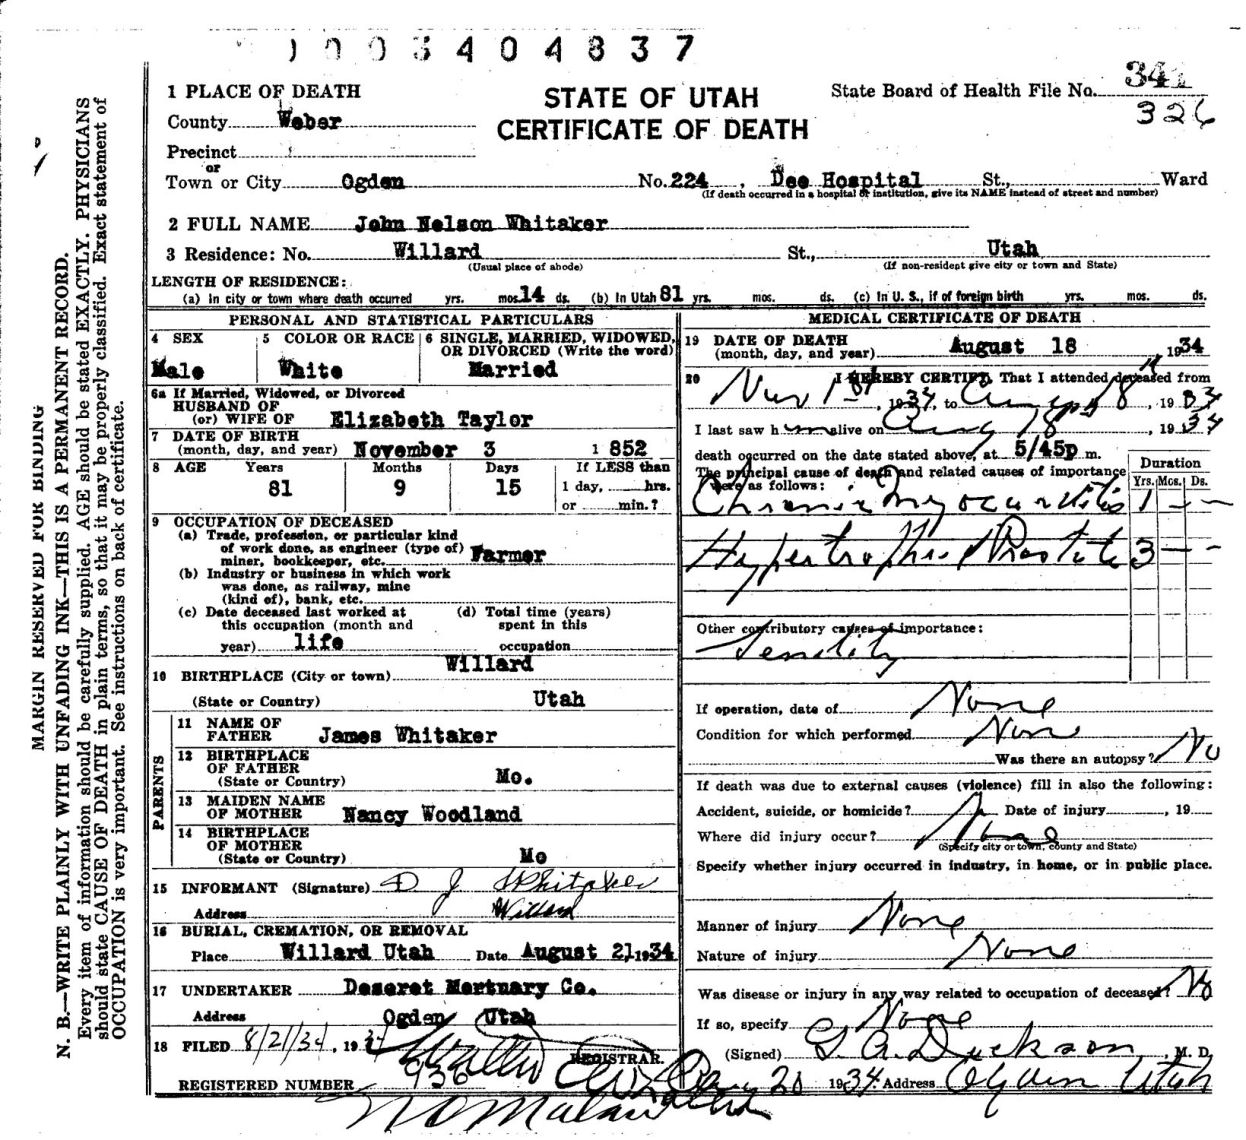 0003404837
1 PLACE OF DEATH
STATE OF UTAH
CERTIFICATE OF DEATH
State Board of Health File No. 341
326
County Weber
Precinct
or
Town or City Ogden No. 224, Dee Hospital St., Ward
(If death occurred in a hospital or institution, give its NAME instead of street and number)
2 FULL NAME John Nelson Whitaker
3 Residence: No. Willard St., Utah
(Usual place of abode) (If non-resident give city or town and State)
LENGTH OF RESIDENCE:
(a) In city or town where death occurred yrs. mos. 14 ds. (b) In Utah 81 yrs. mos. ds. (c) In U. S., if of foreign birth yrs. mos. ds.
PERSONAL AND STATISTICAL PARTICULARS
4 SEX
Male
5 COLOR OR RACE
White
6 SINGLE, MARRIED, WIDOWED,
OR DIVORCED (Write the word)
Married
6a If Married, Widowed, or Divorced
HUSBAND OF
(or) WIFE OF Elizabeth Taylor
7 DATE OF BIRTH
(month, day, and year) November 3 1852
8 AGE Years Months Days If LESS than
81 9 15 1 day, hrs.
or min.?
9 OCCUPATION OF DECEASED
(a) Trade, profession, or particular kind
of work done, as engineer (type of)
miner, bookkeeper, etc. Farmer
(b) Industry or business in which work
was done, as railway, mine
(kind of), bank, etc.
(c) Date deceased last worked at
this occupation (month and
year) life
(d) Total time (years)
spent in this
occupation
10 BIRTHPLACE (City or town) Willard
(State or Country) Utah
PARENTS
11 NAME OF
FATHER James Whitaker
12 BIRTHPLACE
OF FATHER
(State or Country) Mo.
13 MAIDEN NAME
OF MOTHER Nancy Woodland
14 BIRTHPLACE
OF MOTHER
(State or Country) Mo
15 INFORMANT (Signature) D J Whitaker
Address Willard
16 BURIAL, CREMATION, OR REMOVAL
Place Willard Utah Date August 21, 1934
17 UNDERTAKER Deseret Mortuary Co.
Address Ogden Utah
18 FILED 8/21/34, 1934
REGISTRAR.
REGISTERED NUMBER 936
MEDICAL CERTIFICATE OF DEATH
19 DATE OF DEATH
(month, day, and year) August 18, 1934
20 I HEREBY CERTIFY, That I attended deceased from
Nov 1st, 1934, to Aug 18, 1934
I last saw him alive on Aug 18, 1934
death occurred on the date stated above, at 5/45p m.
The principal cause of death and related causes of importance
were as follows:
Duration
Yrs. Mos. Ds.
Chronic Myocarditis 1 - -
Hypertrophied Prostate 3 - -
Other contributory causes of importance:
Senility
If operation, date of None
Condition for which performed None
Was there an autopsy? No
If death was due to external causes (violence) fill in also the following:
Accident, suicide, or homicide? Date of injury, 19
Where did injury occur? None
(Specify city or town, county and State)
Specify whether injury occurred in industry, in home, or in public place.
Manner of injury None
Nature of injury None
Was disease or injury in any way related to occupation of deceased? No
If so, specify None
(Signed) G. A. Dickson, M. D.
Aug 20 1934 Address Ogden Utah
MARGIN RESERVED FOR BINDING
N. B.—WRITE PLAINLY WITH UNFADING INK—THIS IS A PERMANENT RECORD.
Every item of information should be carefully supplied. AGE should be stated EXACTLY. PHYSICIANS
should state CAUSE OF DEATH in plain terms, so that it may be properly classified. Exact statement of
OCCUPATION is very important. See instructions on back of certificate.